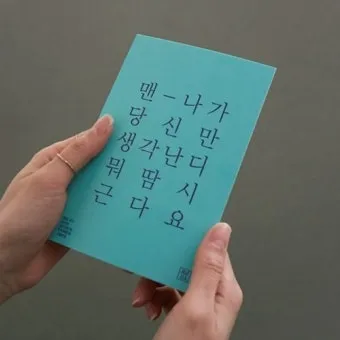 맨–나가
당신만
생각난디
뭐땀시
근다요